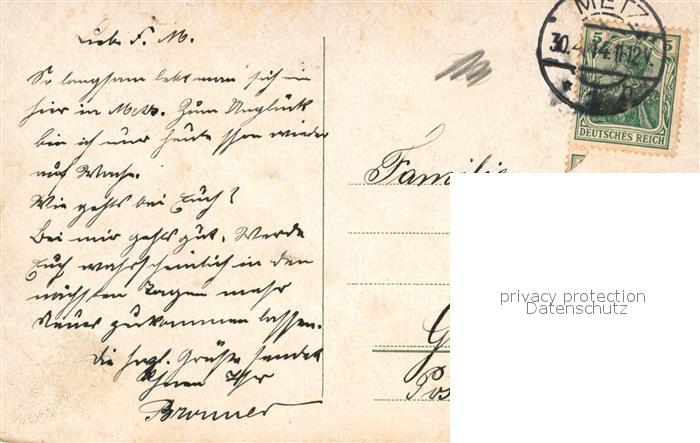 Liebe F. M.
So langsam lebt man sich in
hier in Metz. Zum Unglück
bin ich nur heute schon wieder
auf Wache.
Wie gehts bei Euch?
Bei mir gehts gut. Werde
Euch wahrscheinlich in den
nächsten Tagen mehr
Neues zukommen lassen.
Die herzl. Grüße sendet
Ihnen Ihr
Bronner
METZ
30.4.14.11-12V.
5 5
DEUTSCHES REICH
Familie
privacy protection
Datenschutz